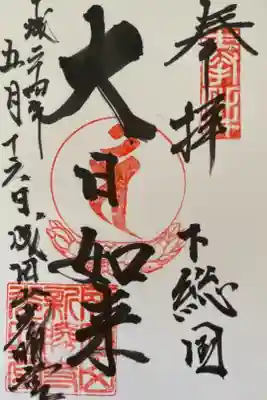 奉拝
下総国
大日如来
平成二十四年
五月十六日
成田山光明堂